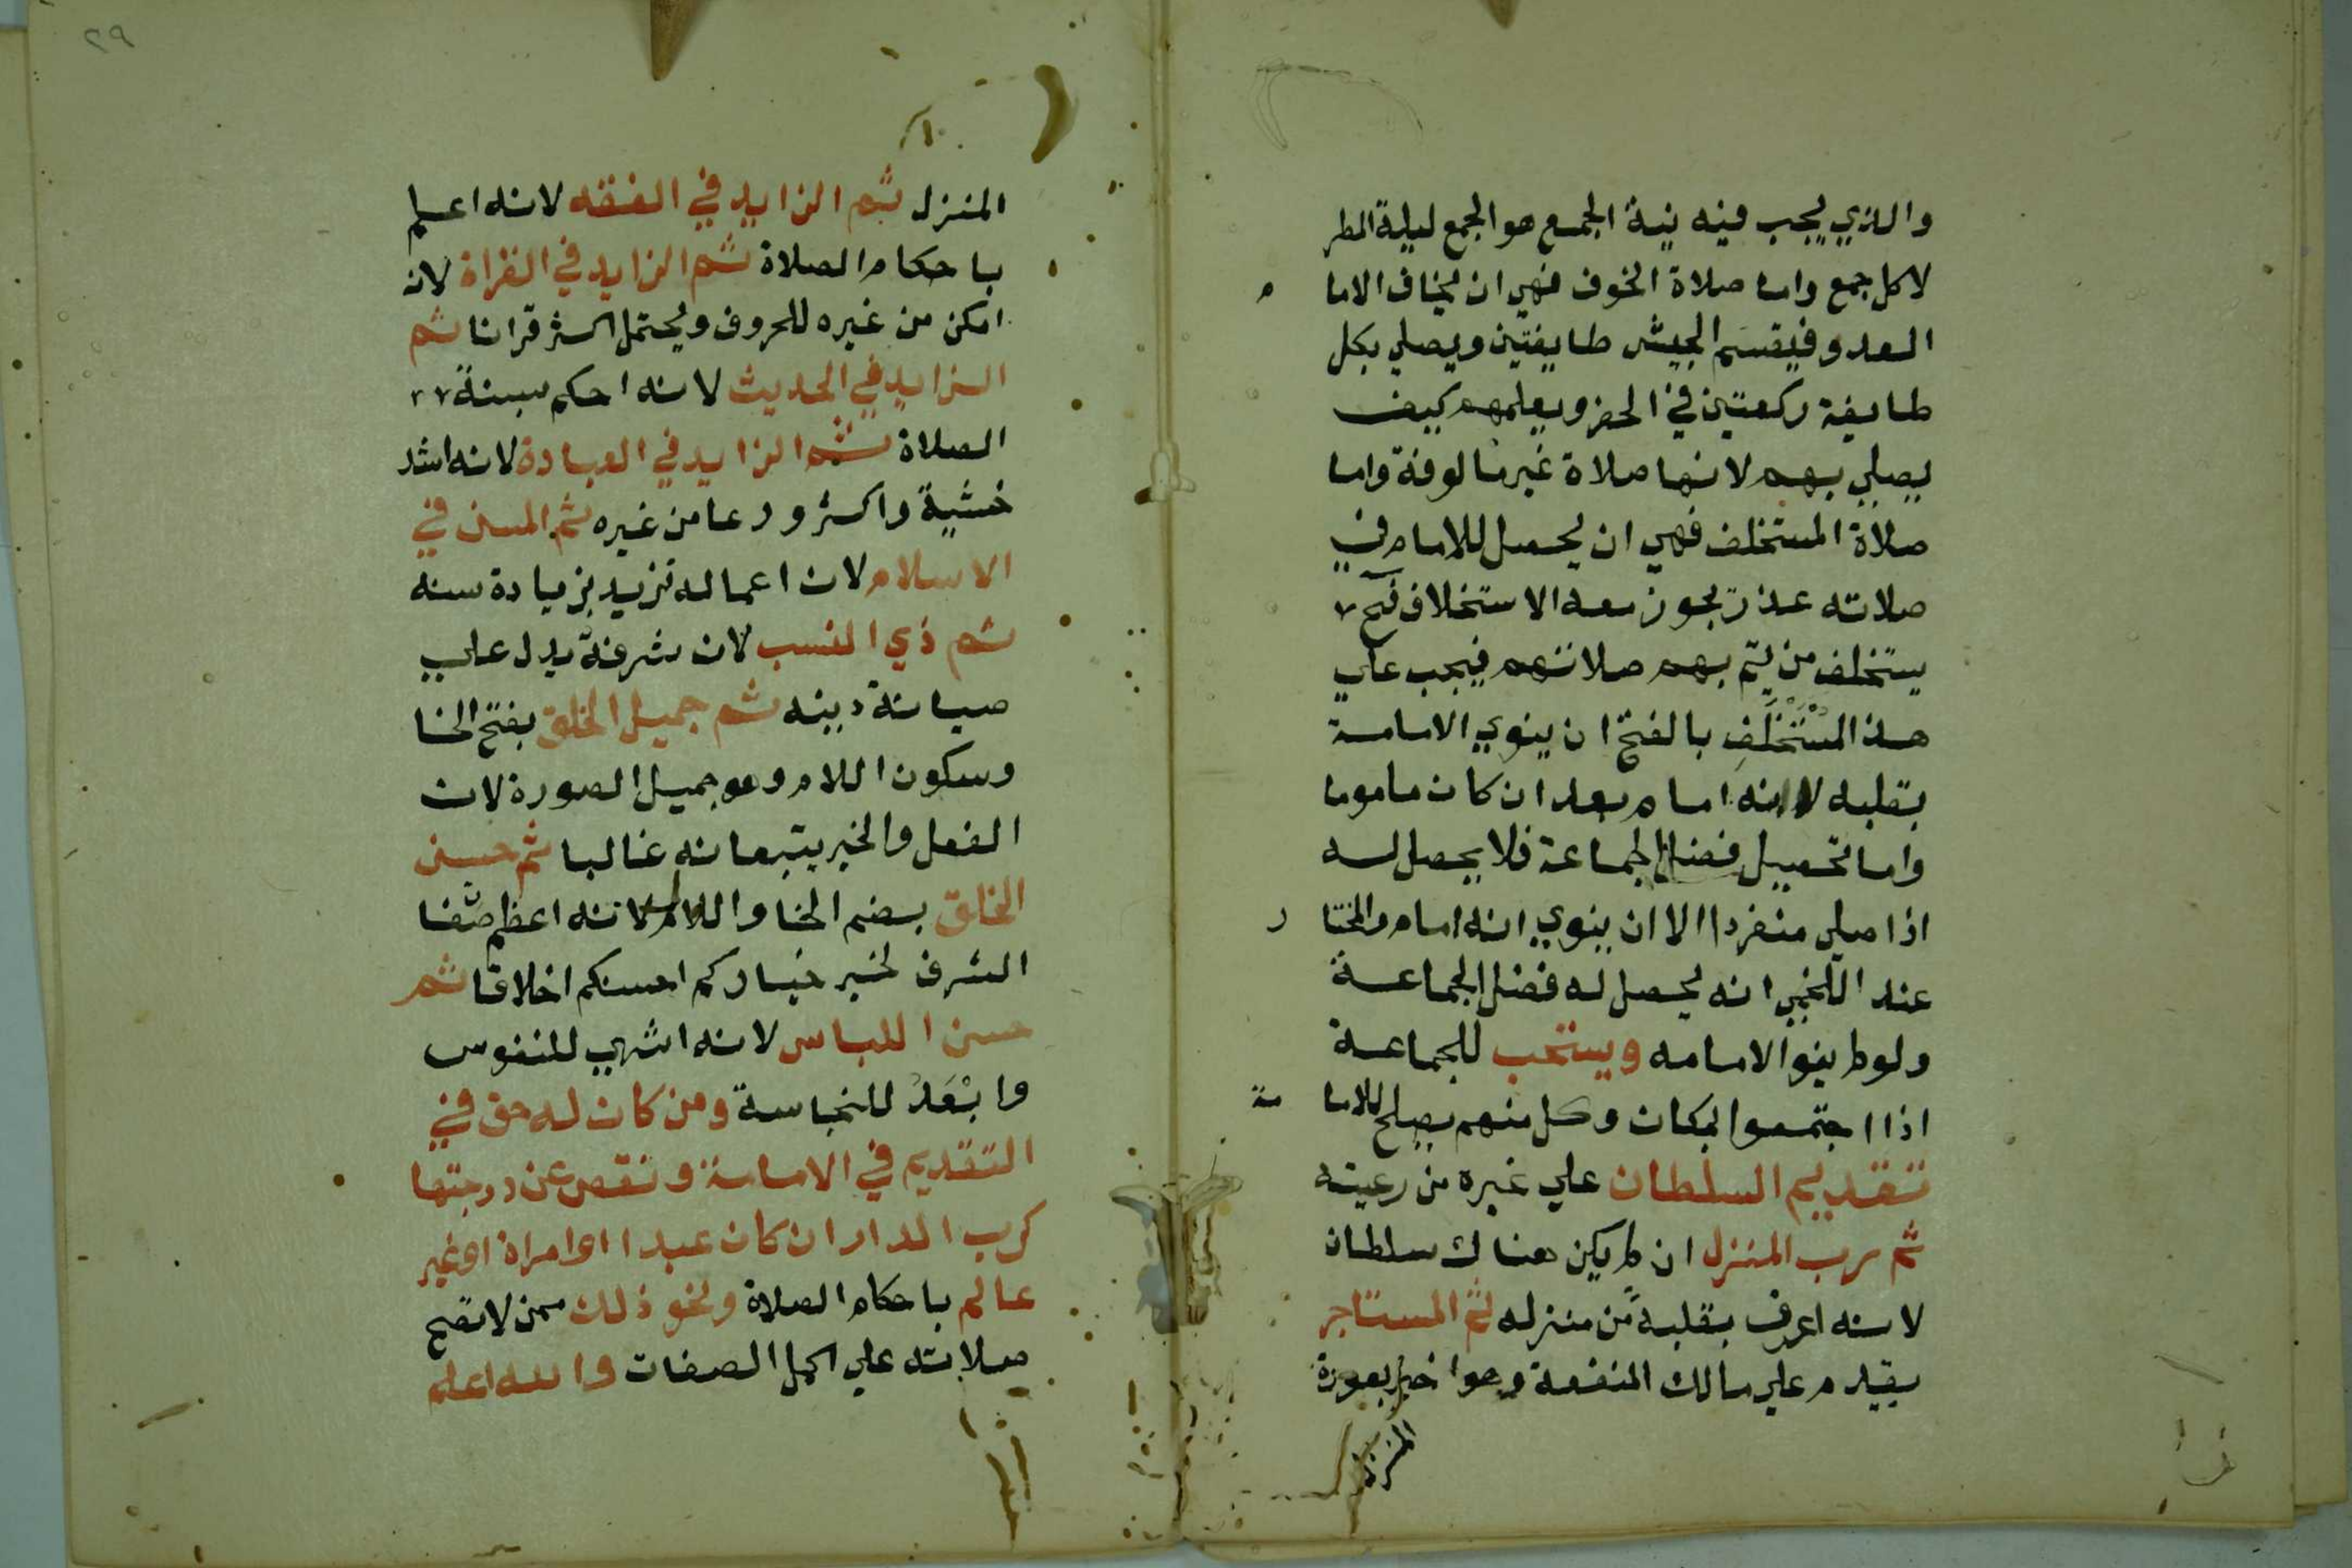 والذي يجب فيه نية الجمع هو الجمع ليلة المطر
لا كل جمع واما صلاة الخوف فهي ان يخاف الامام
العدو فيقسم الجيش طايفتين ويصلي بكل
طايفة ركعتين في الحضر ويعلمهم كيف
يصلي بهم لانها صلاة غير مالوفة واما
صلاة المستخلف فهي ان يحصل للامام في
صلاته عذر يجوز معه الاستخلاف فح
يستخلف من يتم بهم صلاتهم فيجب علي
هذ المستخلف بالفتح ان ينوي الامامة
بقلبه لانه امام بعد ان كان ماموما
واما تحصيل فضل الجماعة فلا يحصل له
اذا صلي منفردا الا ان ينوي انه امام والمختار
عند اللخمي انه يحصل له فضل الجماعة
ولو لم ينو الامامه ويستحب للجماعة
اذا اجتمعوا بمكان وكل منهم يصلح للامامة
تقديم السلطان علي غيره من رعيته
ثم رب المنزل ان لم يكن هناك سلطان
لانه اعرف بقلبة من منزله ثم المستاجر
يقدم علي مالك المنفعة وهو اخبر بعورة
المنزل
٢٩
المنزل ثم الزايد في الفقه لانه اعلم
باحكام الصلاة ثم الزايد في القراة لانه
امكن من غيره للحروف ويحتمل اكثر قرانا ثم
الزايد في الحديث لانه احكم بسنة
الصلاة ثم الزايد في العبادة لانه اشد
خشية واكثر ورعا من غيره ثم المسن في
الاسلام لان اعماله تزيد بزيادة سنه
ثم ذي النسب لان شرفة يدل علي
صيانة دينه ثم جميل الخلق بفتح الخا
وسكون اللام وهو جميل الصورة لان
الفعل والخير يتبعانه غالبا ثم حسن
الخلق بضم الخا واللام لانه اعظم صفا
الشرف لخبر خياركم احسنكم اخلاقا ثم
حسن اللباس لانه اشهي للنفوس
وابْعَدُ للنجاسة ومن كان له حق في
التقديم في الامامة ونقص عن درجتها
كرب الدار ان كان عبدا او امراة او غير
عالم باحكام الصلاة ونحو ذلك ممن لا تصح
صلاته علي اكمل الصفات والله اعلم